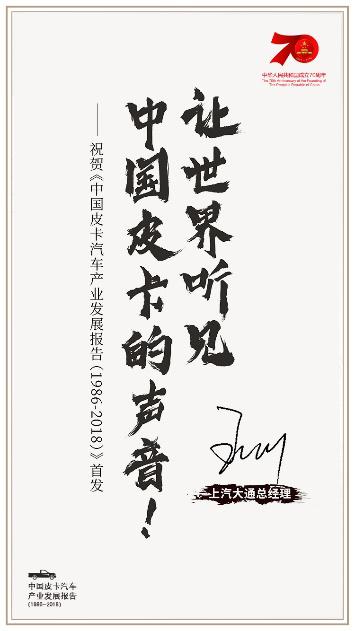 中华人民共和国成立70周年
The 70th Anniversary of the Founding of
The People's Republic of China
让世界听见
中国皮卡的声音！
——祝贺《中国皮卡汽车产业发展报告（1986-2018）》首发
上汽大通总经理
中国皮卡汽车
产业发展报告
(1986-2018)